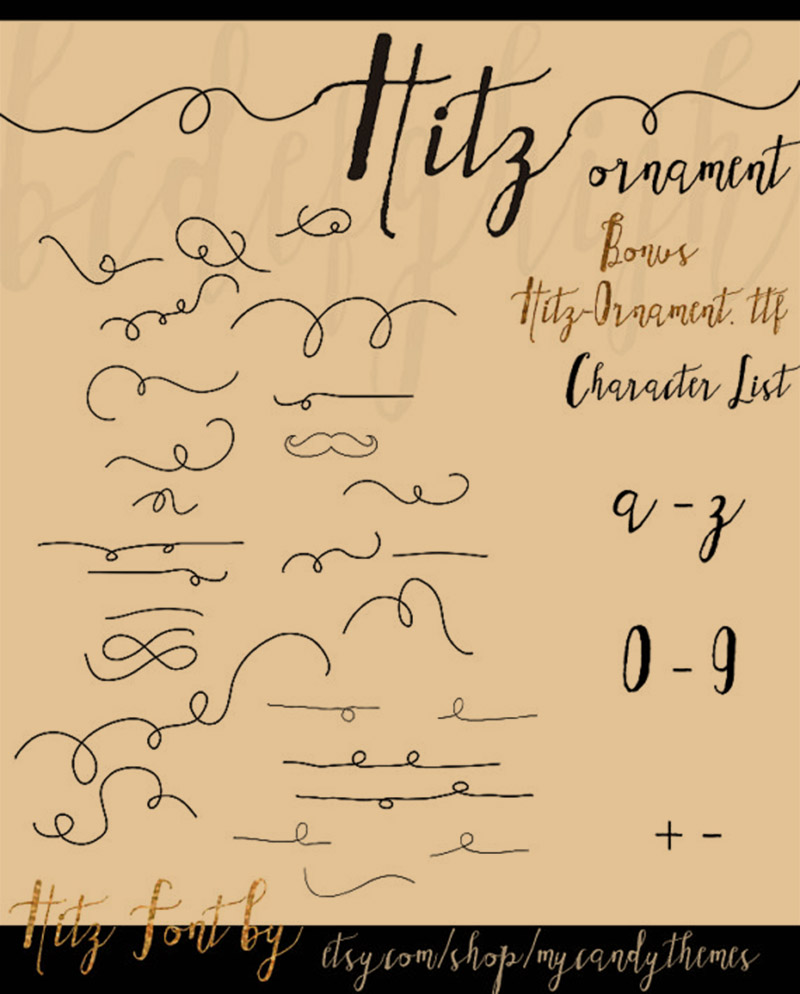 Hitz
ornament
Bonus
Hitz-Ornament.ttf
Character List
a - z
0 - 9
+ -
Hitz Font by
etsy.com/shop/mycandythemes